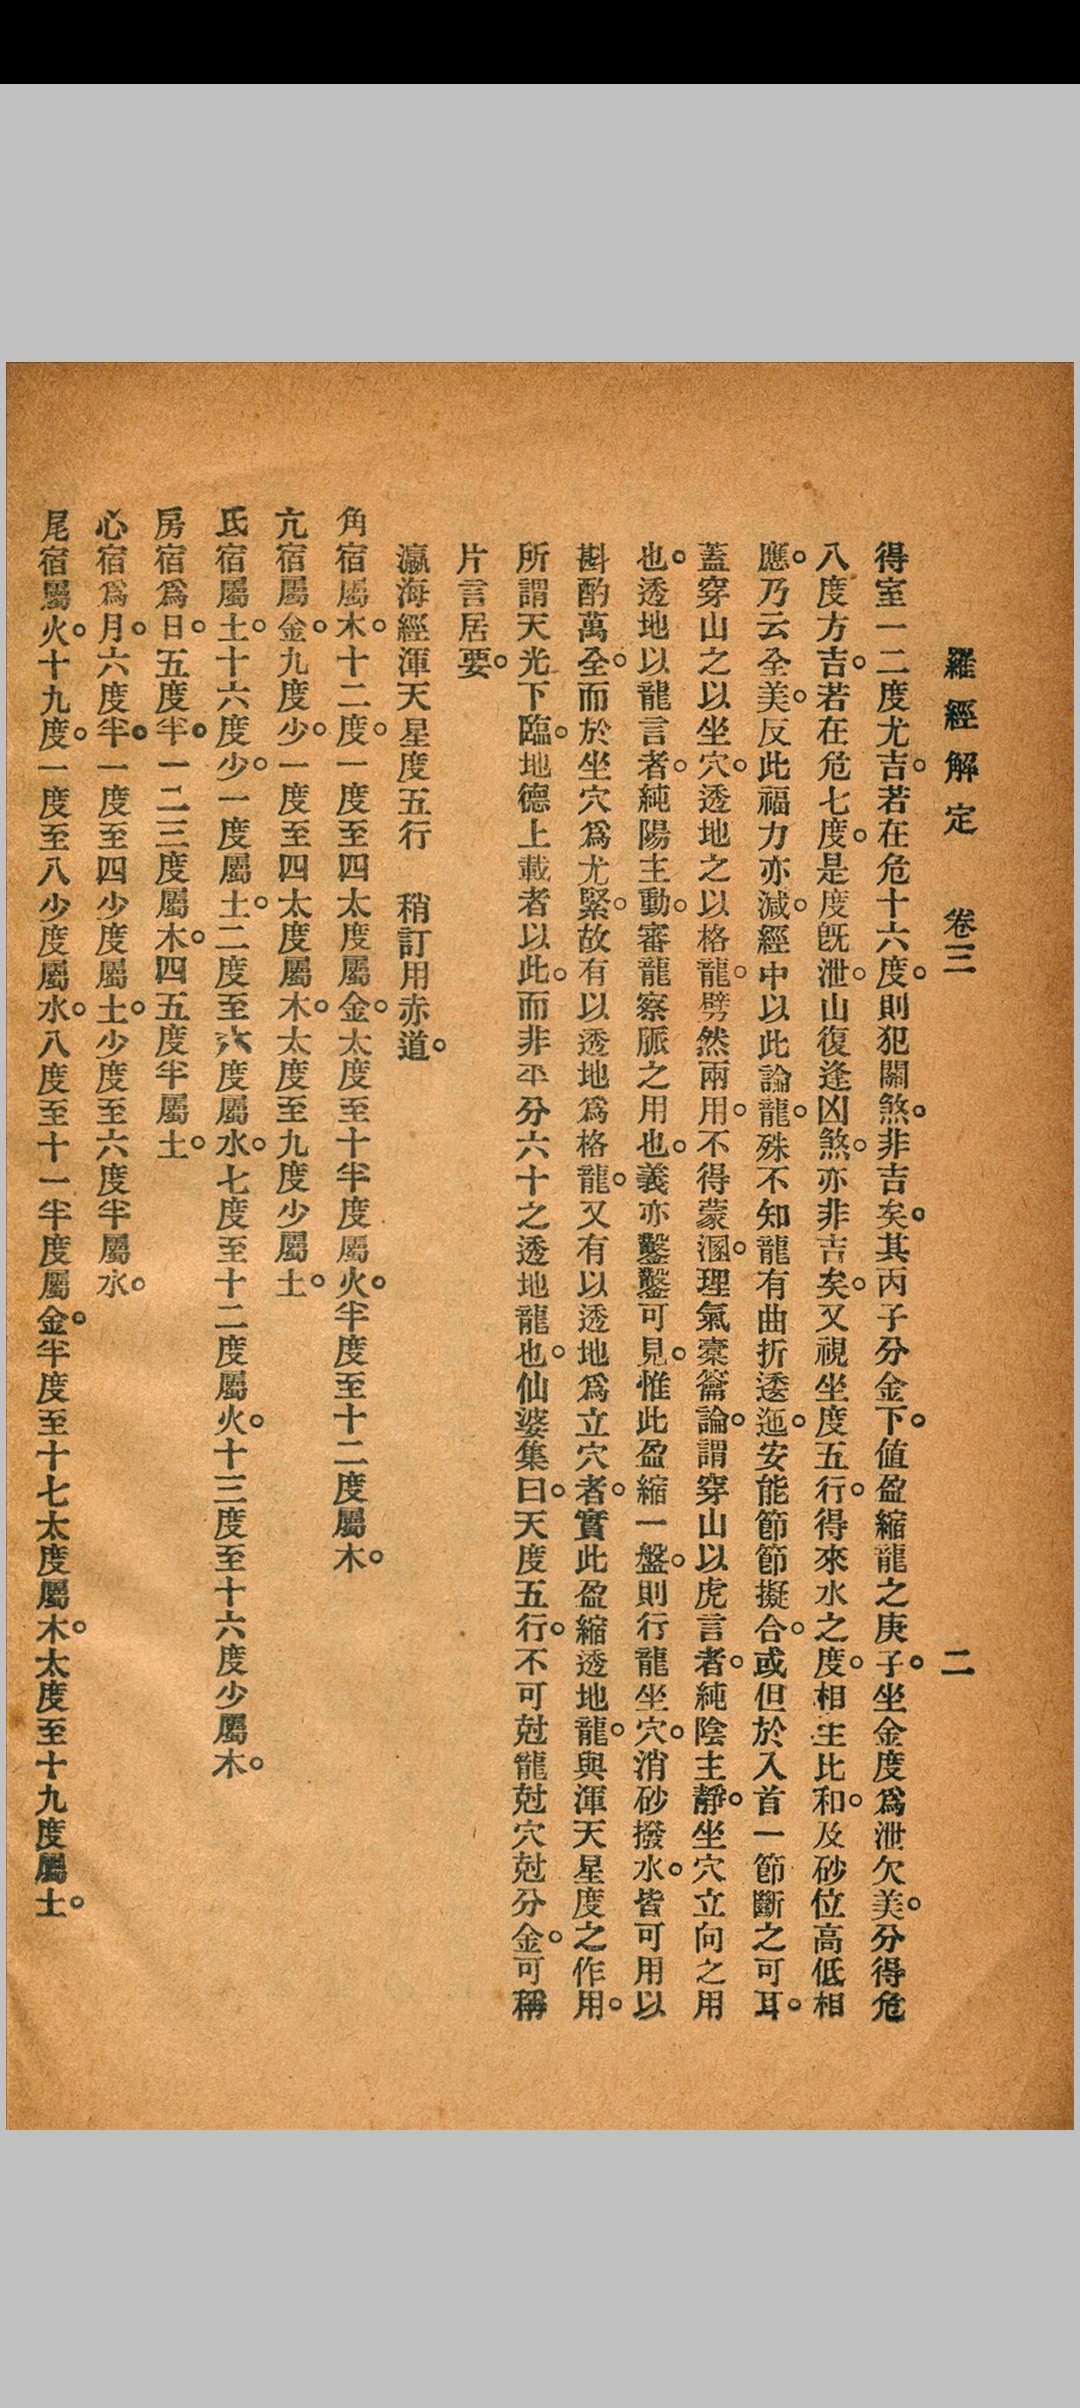 羅經解定　卷三　二
得室一二度尤吉。若在危十六度。則犯關煞。非吉矣。其丙子分金下。值盈縮龍之庚子。坐金度爲泄欠美。分得危
八度方吉。若在危七度。是度旣泄。山復逢凶煞。亦非吉矣。又視坐度五行。得來水之度。相生比和。及砂位高低相
應。乃云全美。反此福力亦減。經中以此論龍。殊不知龍有曲折逶迤。安能節節擬合。或但於入首一節斷之可耳。
蓋穿山之以坐穴。透地之以格龍。劈然兩用。不得蒙溷。理氣橐籥論。謂穿山以虎言者。純陰主靜。坐穴立向之用
也。透地以龍言者。純陽主動。審龍察脈之用也。義亦鑿鑿可見。惟此盈縮一盤。則行龍坐穴。消砂撥水。皆可用以
斟酌萬全。而於坐穴爲尤緊。故有以透地爲格龍。又有以透地爲立穴者。實此盈縮透地龍。與渾天星度之作用。
所謂天光下臨。地德上載者以此。而非平分六十之透地龍也。仙婆集曰。天度五行。不可尅龍尅穴尅分金。可稱
片言居要。
瀛海經渾天星度五行　稍訂用赤道。
角宿屬木。十二度。一度至四太度屬金。太度至十半度屬火。半度至十二度屬木。
亢宿屬金。九度少。一度至四太度屬木。太度至九度少屬土。
氐宿屬土。十六度少。一度屬土。二度至六度屬水。七度至十二度屬火。十三度至十六度少屬木。
房宿爲日。五度半。一二三度屬木。四五度半屬土。
心宿爲月。六度半。一度至四少度屬土。少度至六度半屬水。
尾宿屬火。十九度。一度至八少度屬水。八度至十一半度屬金。半度至十七太度屬木。太度至十九度屬土。